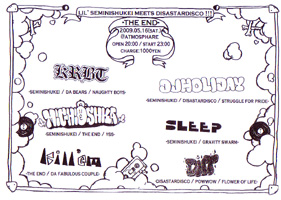 LIL' SEMINISHUKEI MEETS DISASTARDISCO !!!
-THE END-
2009.05.16(SAT)
@ATMOSPHARE
OPEN 20:00 / START 23:00
CHARGE 1000YEN
KRBT
-SEMINISHUKEI / DA BEARS / NAUGHTY BOYS-
DJHOLIDAY
-SEMINISHUKEI / DISASTARDISCO / STRUGGLE FOR PRIDE-
-SEMINISHUKEI / THE END / YSS-
SLEEP
-SEMINISHUKEI / GRAVITY SWARM-
-THE END / DA FABULOUS COUPLE-
-DISASTARDISCO / POWWOW / FLOWER OF LIFE-